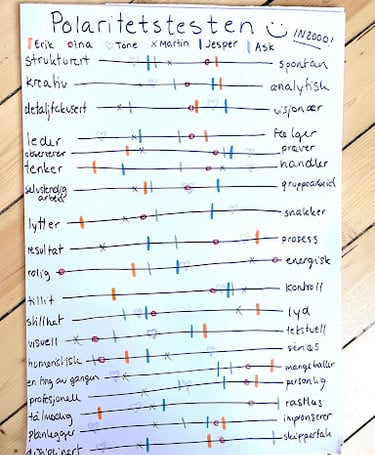 Polaritetstesten IN2000!
Erik Ina Tone Martin Jesper Ask
strukturert spontan
kreativ analytisk
detaljfokusert visjonær
leder følger
observerer prøver
tenker handler
selvstendig arbeid gruppearbeid
lytter snakker
resultat prosess
rolig energisk
tillit kontroll
stillhet lyd
visuell tekstuell
humoristisk seriøs
en ting av gangen mange baller
profesjonell personlig
tålmodig rastløs
planlegger improviserer
disiplinert skippertak